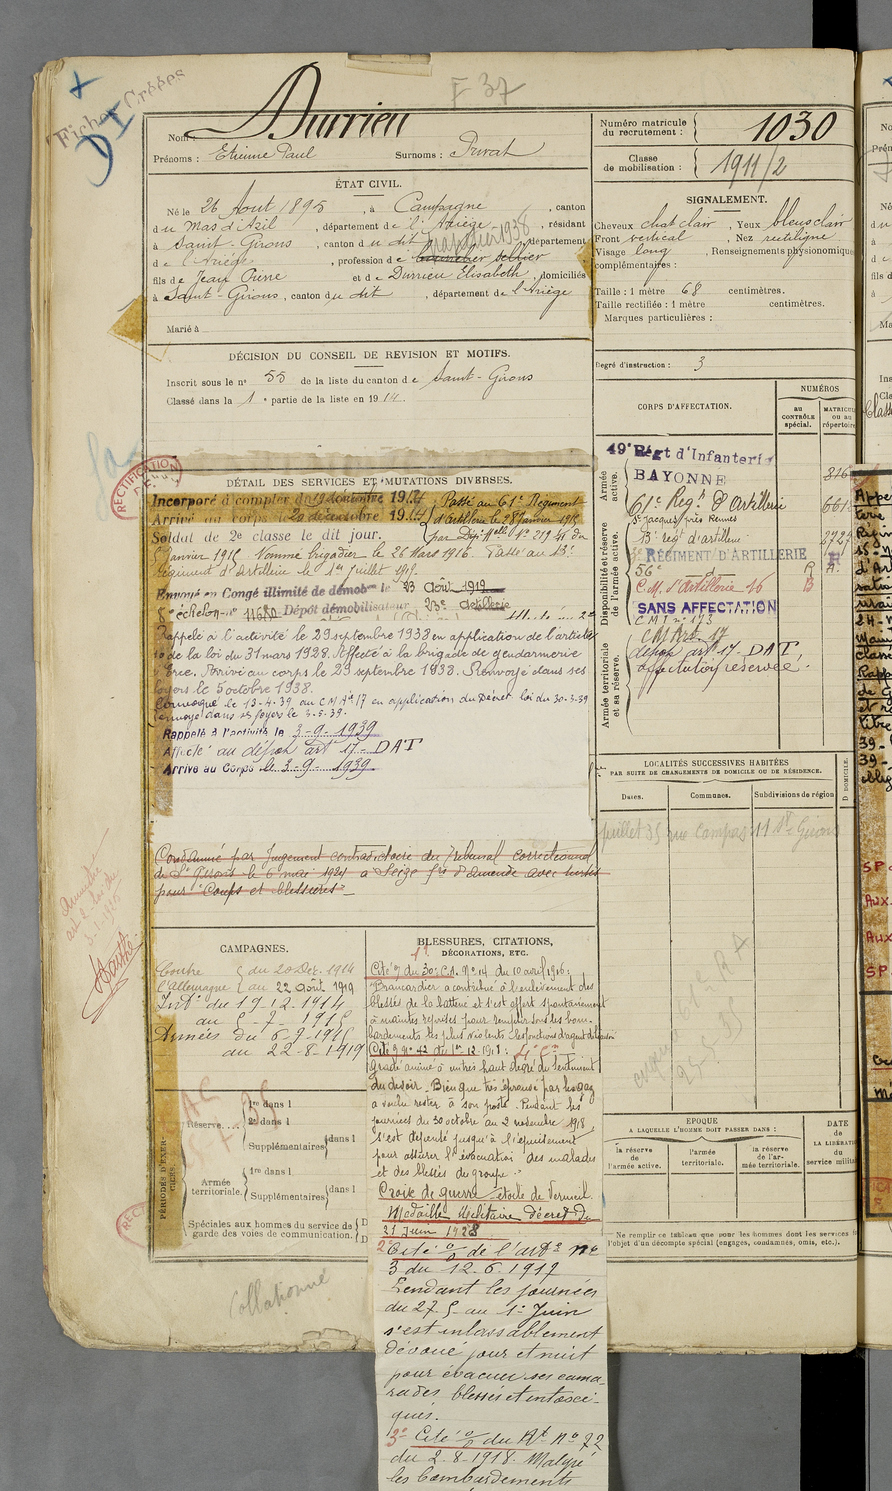 Fiches Créées
F 37
Nom : Durrieu
Prénoms : Etienne Paul Surnoms : Privat
ÉTAT CIVIL.
Né le 26 Aout 1895, à Campagne, canton
du Mas d'Azil, département de l'Ariège, résidant
à Saint-Girons, canton du dit, département
de l'Ariège, profession de sellier
fils de Jean Pierre et de Durrieu Elisabeth, domiciliés
à Saint-Girons, canton du dit, département de l'Ariège
Marié à
DÉCISION DU CONSEIL DE REVISION ET MOTIFS.
Inscrit sous le n° 55 de la liste du canton de Saint-Girons
Classé dans la 1e partie de la liste en 1914.
Numéro matricule
du recrutement : 1030
Classe
de mobilisation : 1911/2
SIGNALEMENT.
Cheveux chat clair, Yeux bleus clair
Front vertical, Nez rectiligne
Visage long, Renseignements physionomiques
complémentaires :
Taille : 1 mètre 68 centimètres.
Taille rectifiée : 1 mètre centimètres.
Marques particulières :
Degré d'instruction : 3
CORPS D'AFFECTATION.
NUMÉROS
au
CONTRÔLE
spécial.
MATRICULE
ou au
répertoire
Armée
active.
49e Régt d'Infanterie
BAYONNE
61e Regt d'Artillerie
St Jacques près Rennes
13e régt d'artillerie
Disponibilité et réserve
de l'armée active.
RÉGIMENT D'ARTILLERIE
56e
C.M. d'Artillerie 16
SANS AFFECTATION
C.M.I n° 173
C.M. Art. 17
Armée territoriale
et sa réserve.
dépôt art 17- DAT
affectation réservée.
RECTIFICATION
DÉTAIL DES SERVICES ET MUTATIONS DIVERSES.
Incorporé à compter du 19 décembre 1914 Passé au 61e Régiment
Arrivé au corps le 20 décembre 1914 d'Artillerie le 28 Janvier 1915
Soldat de 2e classe le dit jour.
Janvier 1915. Nommé brigadier le 26 Mars 1916. Passé au 13e
régiment d'Artillerie le 1er Juillet 1919.
Envoyé en Congé illimité de démobon le 23 Août 1919
8e échelon n° 11680 Dépôt démobilisateur 23e Artillerie
Rappelé à l'activité le 29 septembre 1938 en application de l'article
40 de la loi du 31 mars 1928. Affecté à la brigade de gendarmerie
Arrivé au corps le 29 septembre 1938. Renvoyé dans ses
foyers le 5 octobre 1938.
Convoqué le 13-4-39 au C M Art 17 en application du Décret loi du 30-3-39
renvoyé dans ses foyers le 3-5-39.
Rappelé à l'activité le 3-9-1939
Affecté au dépôt art 17- DAT
Arrivé au Corps le 3-9-1939
Condamné par Jugement contradictoire du Tribunal correctionnel
de St Girons le 6 mai 1924 à Seize frs d'amende avec sursis
pour "Coups et blessures"
LOCALITÉS SUCCESSIVES HABITÉES
PAR SUITE DE CHANGEMENTS DE DOMICILE OU DE RÉSIDENCE.
Dates.
Communes.
Subdivisions de région
D DOMICILE.
juillet 35 rue Campas 11 St Girons
CAMPAGNES.
Contre du 20 Déc. 1914
l'Allemagne au 22 août 1919
Intr du 19-12-1914
au 5-7-1915
Armées du 6-7-1915
au 22-8-1919
BLESSURES, CITATIONS,
DÉCORATIONS, ETC.
Cité du 30e C.A. N° 14 du 10 avril 1916 :
"Brancardier a contribué à l'enlèvement des
blessés de la batterie et s'est offert spontanément
à maintes reprises pour remplir sous les bom-
bardements les plus violents les fonctions d'agent de liaison
Cité n° 42 du 1er 12-1918 :
Gradé animé d'un très haut degré du sentiment
du devoir. Bien que très éprouvé par les gaz
a voulu rester à son poste. Pendant les
journées du 30 octobre au 2 novembre 1918
s'est dépensé jusqu'à l'épuisement
pour assurer l'évacuation des malades
et des blessés du groupe."
Croix de guerre étoile de Vermeil.
Médaille Militaire décret du
21 Juin 1928
2° Cité de l'artie n°
3 du 12.6.1917
Pendant les journées
du 27-5 au 1er Juin
s'est inlassablement
dévoué jour et nuit
pour évacuer ses cama-
rades blessés et intoxi-
qués.
3° Cité du Rt N° 72
du 2-8-1918. Malgré
les bombardements
PÉRIODES D'EXERCICES.
Réserve...
1re dans l
2e dans l
Supplémentaires dans l
Armée
territoriale.
1re dans l
Supplémentaires dans l
Spéciales aux hommes du service de
garde des voies de communication.
Collationné
ÉPOQUE
A LAQUELLE L'HOMME DOIT PASSER DANS :
la réserve
de l'armée active.
l'armée
territoriale.
la réserve
de l'ar-
mée territoriale.
DATE
de
LA LIBÉRATION
du
service militaire
Ne remplir ce tableau que pour les hommes dont les services
l'objet d'un décompte spécial (engagés, condamnés, omis, etc.).